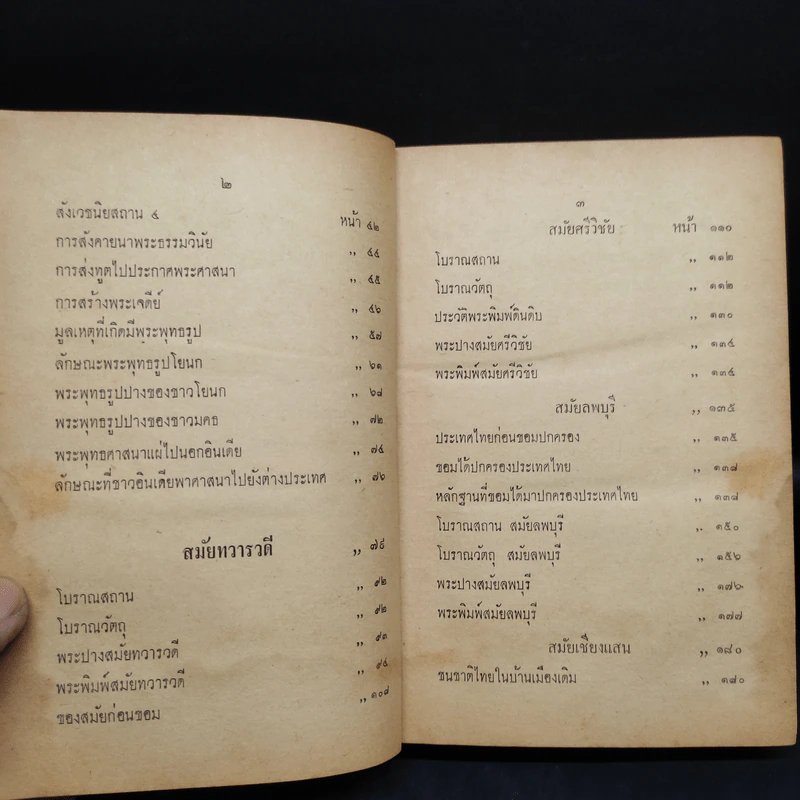 ๒
สังเวชนิยสถาน ๔ หน้า ๔๒
การสังคายนาพระธรรมวินัย ,, ๔๔
การส่งทูตไปประกาศพระศาสนา ,, ๔๕
การสร้างพระเจดีย์ ,, ๔๖
มูลเหตุที่เกิดมีพระพุทธรูป ,, ๕๗
ลักษณะพระพุทธรูปโยนก ,, ๖๑
พระพุทธรูปปางของชาวโยนก ,, ๖๘
พระพุทธรูปปางของชาวมคธ ,, ๗๒
พระพุทธศาสนาแผ่ไปนอกอินเดีย ,, ๗๔
ลักษณะที่ชาวอินเดียพาศาสนาไปยังต่างประเทศ ,, ๗๖
สมัยทวารวดี ,, ๗๙
โบราณสถาน ,, ๙๒
โบราณวัตถุ ,, ๙๒
พระปางสมัยทวารวดี ,, ๙๓
พระพิมพ์สมัยทวารวดี ,, ๙๔
ของสมัยก่อนขอม ,, ๑๐๘
๓
สมัยศรีวิชัย หน้า ๑๑๐
โบราณสถาน ,, ๑๑๒
โบราณวัตถุ ,, ๑๑๒
ประวัติพระพิมพ์ดินดิบ ,, ๑๓๐
พระปางสมัยศรีวิชัย ,, ๑๓๔
พระพิมพ์สมัยศรีวิชัย ,, ๑๓๔
สมัยลพบุรี ,, ๑๓๕
ประเทศไทยก่อนขอมปกครอง ,, ๑๓๕
ขอมได้ปกครองประเทศไทย ,, ๑๓๗
หลักฐานที่ขอมได้มาปกครองประเทศไทย ,, ๑๓๘
โบราณสถาน สมัยลพบุรี ,, ๑๕๐
โบราณวัตถุ สมัยลพบุรี ,, ๑๕๖
พระปางสมัยลพบุรี ,, ๑๗๖
พระพิมพ์สมัยลพบุรี ,, ๑๗๗
สมัยเชียงแสน ,, ๑๘๐
ชนชาติไทยในบ้านเมืองเดิม ,, ๑๘๐